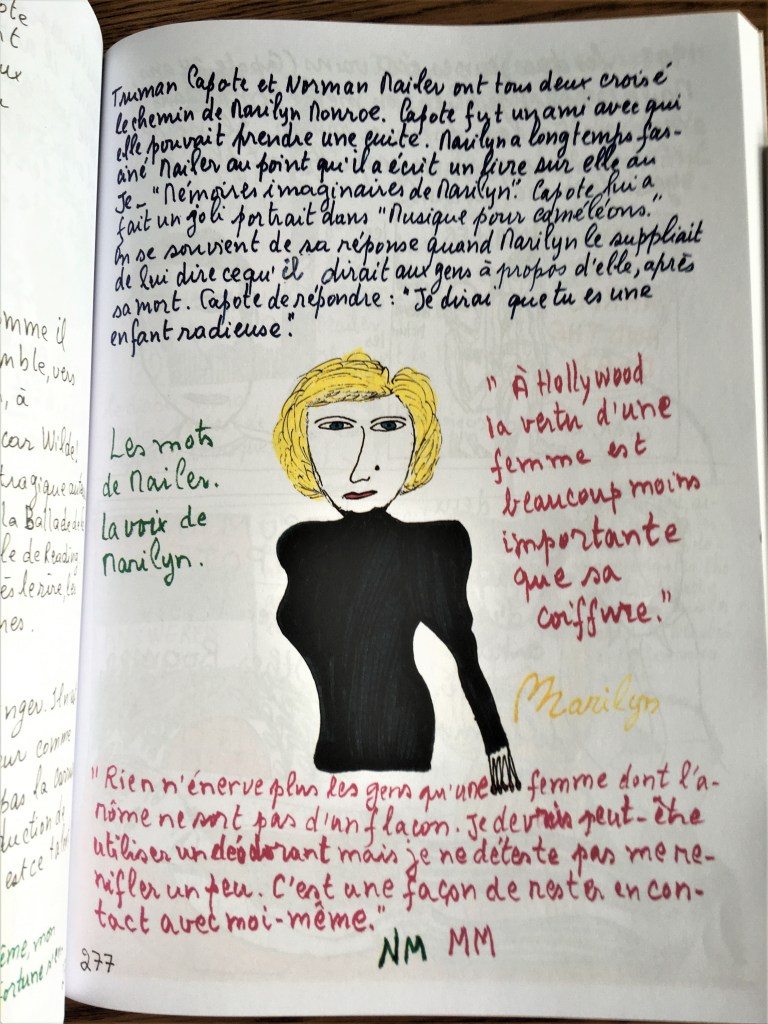 Truman Capote et Norman Mailer ont tous deux croisé
le chemin de Marilyn Monroe. Capote fut un ami avec qui
elle pouvait prendre une cuite. Marilyn a longtemps fas-
ciné Mailer au point qu'il a écrit un livre sur elle au
Je - "Mémoires imaginaires de Marilyn". Capote lui a
fait un joli portrait dans "Musique pour caméléons."
On se souvient de sa réponse quand Marilyn le suppliait
de lui dire ce qu'il dirait aux gens à propos d'elle, après
sa mort. Capote de répondre : "Je dirai que tu es une
enfant radieuse".
Les mots
de Mailer.
la voix de
Marilyn.
" À Hollywood
la vertu d'une
femme est
beaucoup moins
importante
que sa
coiffure."
Marilyn
"Rien n'énerve plus les gens qu'une femme dont l'a-
rôme ne sort pas d'un flacon. Je devrais peut-être
utiliser un déodorant mais je ne déteste pas me re-
nifler un peu. C'est une façon de rester en con-
tact avec moi-même."
NM MM
277
omme il
mble, vers
, à
car Wilde!
tragique
la Ballade
de Reading
nger.
ur comme
pas la
duction de
est ce
ême, mon